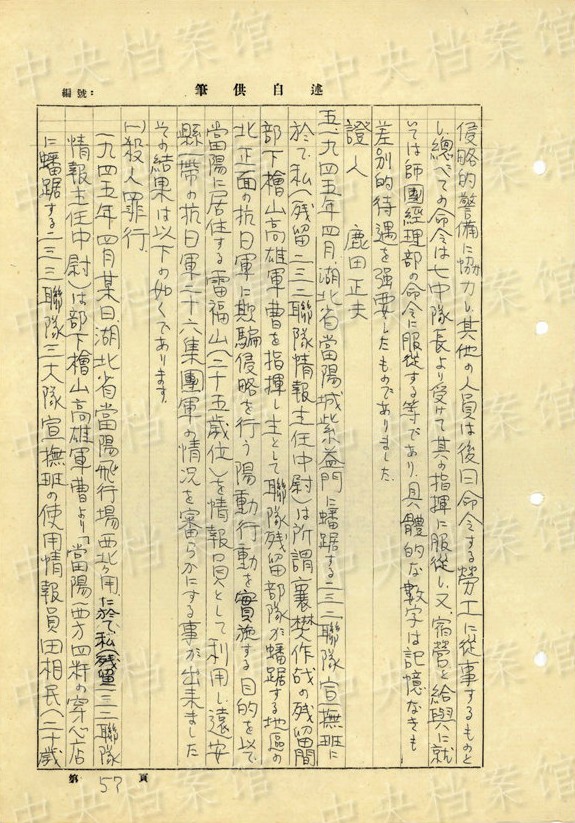 中央档案馆
筆供自述
編號：
侵略的警備に協力し其他の人員は後日命令する勞工に從事するものと
し總べての命令は七中隊長より受けて其の指揮に服從し又、宿營と給與に就
いては師團經理部の命令に服從する等であり、具體的な數字は記憶なきも
差別的待遇を強要したものでありました。
證人　鹿田正夫
五、一九四五年四月、湖北省當陽城紫益門に蟠踞する二三二聯隊宣撫班に
於て、私(残留二三二聯隊情報主任中尉)は所謂襄樊作战の残留間
部下檜山高雄軍曹を指揮し主として聯隊残留部隊が蟠踞する地區の
北正面の抗日軍に欺騙侵略を行う陽動行動を實施する目的を以て
當陽に居住する雷福山(二十五歲位)を情報員として利用し遠安
縣一帶の抗日軍二十六集團軍の情况を審らかにする事が出来ました
その結果は以下の如くであります。
(一)殺人罪行.
一九四五年四月某日、湖北省當陽飛行場西北ヶ所に於て、私(残留二三二聯隊
情報主任中尉)は部下檜山高雄軍曹より「當陽西方四粁の穿心店
に蟠踞する二三二聯隊三大隊宣撫班の使用情報員田相民(二十歲
第57頁